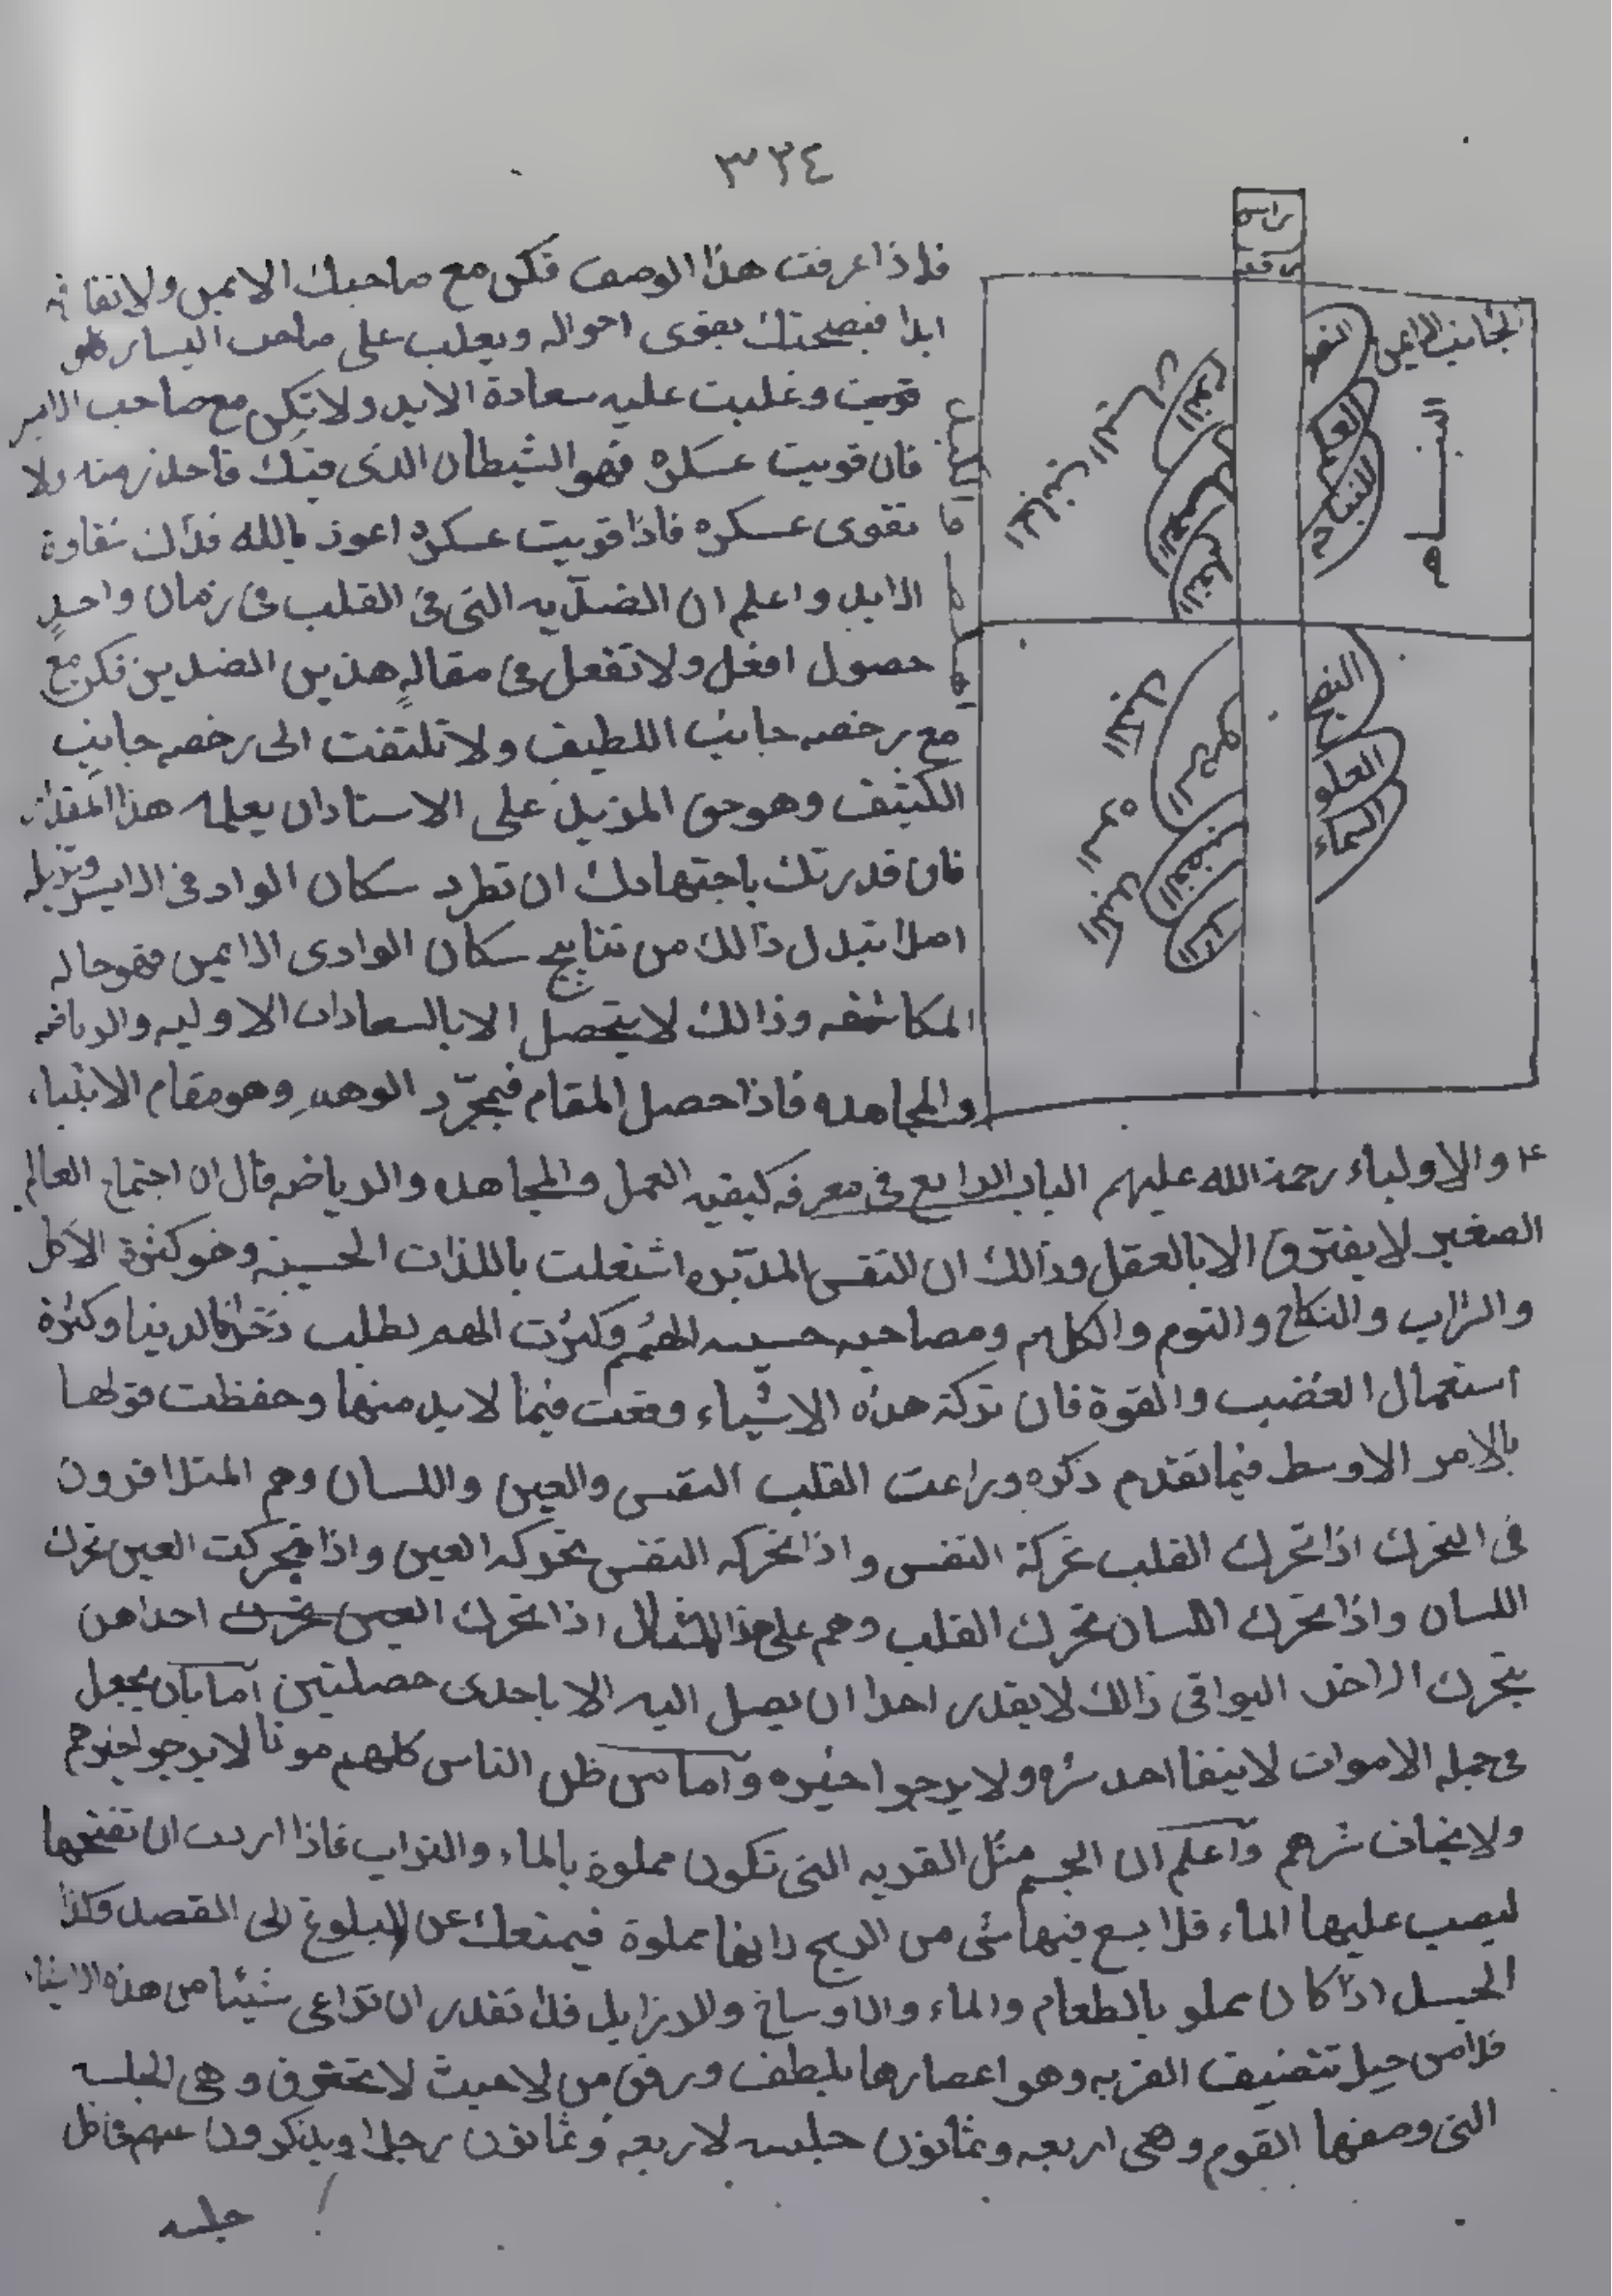 ٣٢٤
فاذا عرفت هذا الوصف فكن مع صاحبك الايمن ولا
ابدا فبصحبتك يقوى احواله ويغلب على صاحب اليسار
قويت وغلبت عليه سعادة الابد ولا تكن مع صاحب
فان قويت عسكره فهو الشيطان الذى فيك فاحذر منه ولا
تقوى عسكره فاذا قويت عسكره اعوذ بالله فذلك شقاوة
الابد واعلم ان الضدّيه التى فى القلب فى زمان واحدٍ
حصول افعل ولا تفعل فى مقالهِ هذين الضدين فكن مع
مع رخصه جانب اللطيف ولا تلتفت الى رخصه جانب
الكثيف وهو حق المزيد على الاستاد ان يعلمه هذا المقدار
فان قدرتك باجتهادك ان تطرد سكان الواد فى الايسر
اصلا تبدل ذالك من نتايج سكان الوادى الايمن فهو حاله
المكاشفه وذالك لا يتحصل الا بالسعادات الاوليه والرياضه
والمجاهده فاذا حصل المقام فبمجرّد وهو مقام الانبياء
والاولياء رحمة الله عليهم الباب الرابع فى معرفه كيفيه العمل والمجاهده والرياضه قال ان اجتماع العالم
الصغير لا يفترق الا بالعقل وذالك ان النفس المدبّره اشتغلت باللذات الحسينه ونحو كثرة الاكل
والشراب والنكاح والنوم والكلام ومصاحبه حسيسه الهمم وكثرت الهم بطلب الدنيا وكثرة
استعمال الغضب والقوة فان تركة هذه الاشياء وقعت فيما لا بد منها وحفظت قولها
بالامر الاوسط فيما تقدم ذكره وراعت القلب النفس والعين واللسان وهم المتلافرون
فى التحرك اذا تحرك القلب تحركة النفس واذا تحركه النفس تحركه العين واذا تحركت العين تحرك
اللسان واذا تحرك اللسان تحرك القلب وهم على هذا المثال اذا تحرك العين تحرك احداهن
يتحرك الاخر البواقى ذالك لا يقدر احدا ان يصل اليه الا باحدى حصلتين اما بان يجعل
فى جمله الاموات لا ينفا احد شره ولا يرجوا خيره واما من ظن الناس كلهم موتا لا يرجوا خيرهم
ولا يخاف شرهم واعلم ان الجسم مثل القربه التى تكون مملوة بالماء والتراب فاذا اردت ان تفتحها
ليصب عليها الماء فلا يسع فيها شى من الريح دايما مملوة فيمنعك عن البلوغ الى القصد فكذا
الجسد اذا كان مملو بالطعام والماء والاوساخ والارزايل فلا تقدر ان تراعى شيئا من هذه الاشياء
فلا من حيل تنضيف القربه وهو اعصارها بلطف ورفق من لا حيث لا تحترق وهى الجلسه
التى وصفها القوم وهى اربعه وثمانون جلسه لاربعه وثمانون رجلا ويذكرون
جلسه
الجانب الايمن
العلم
النباهه
الجانب اليسار
النوم
النعاس
العلو
الماء